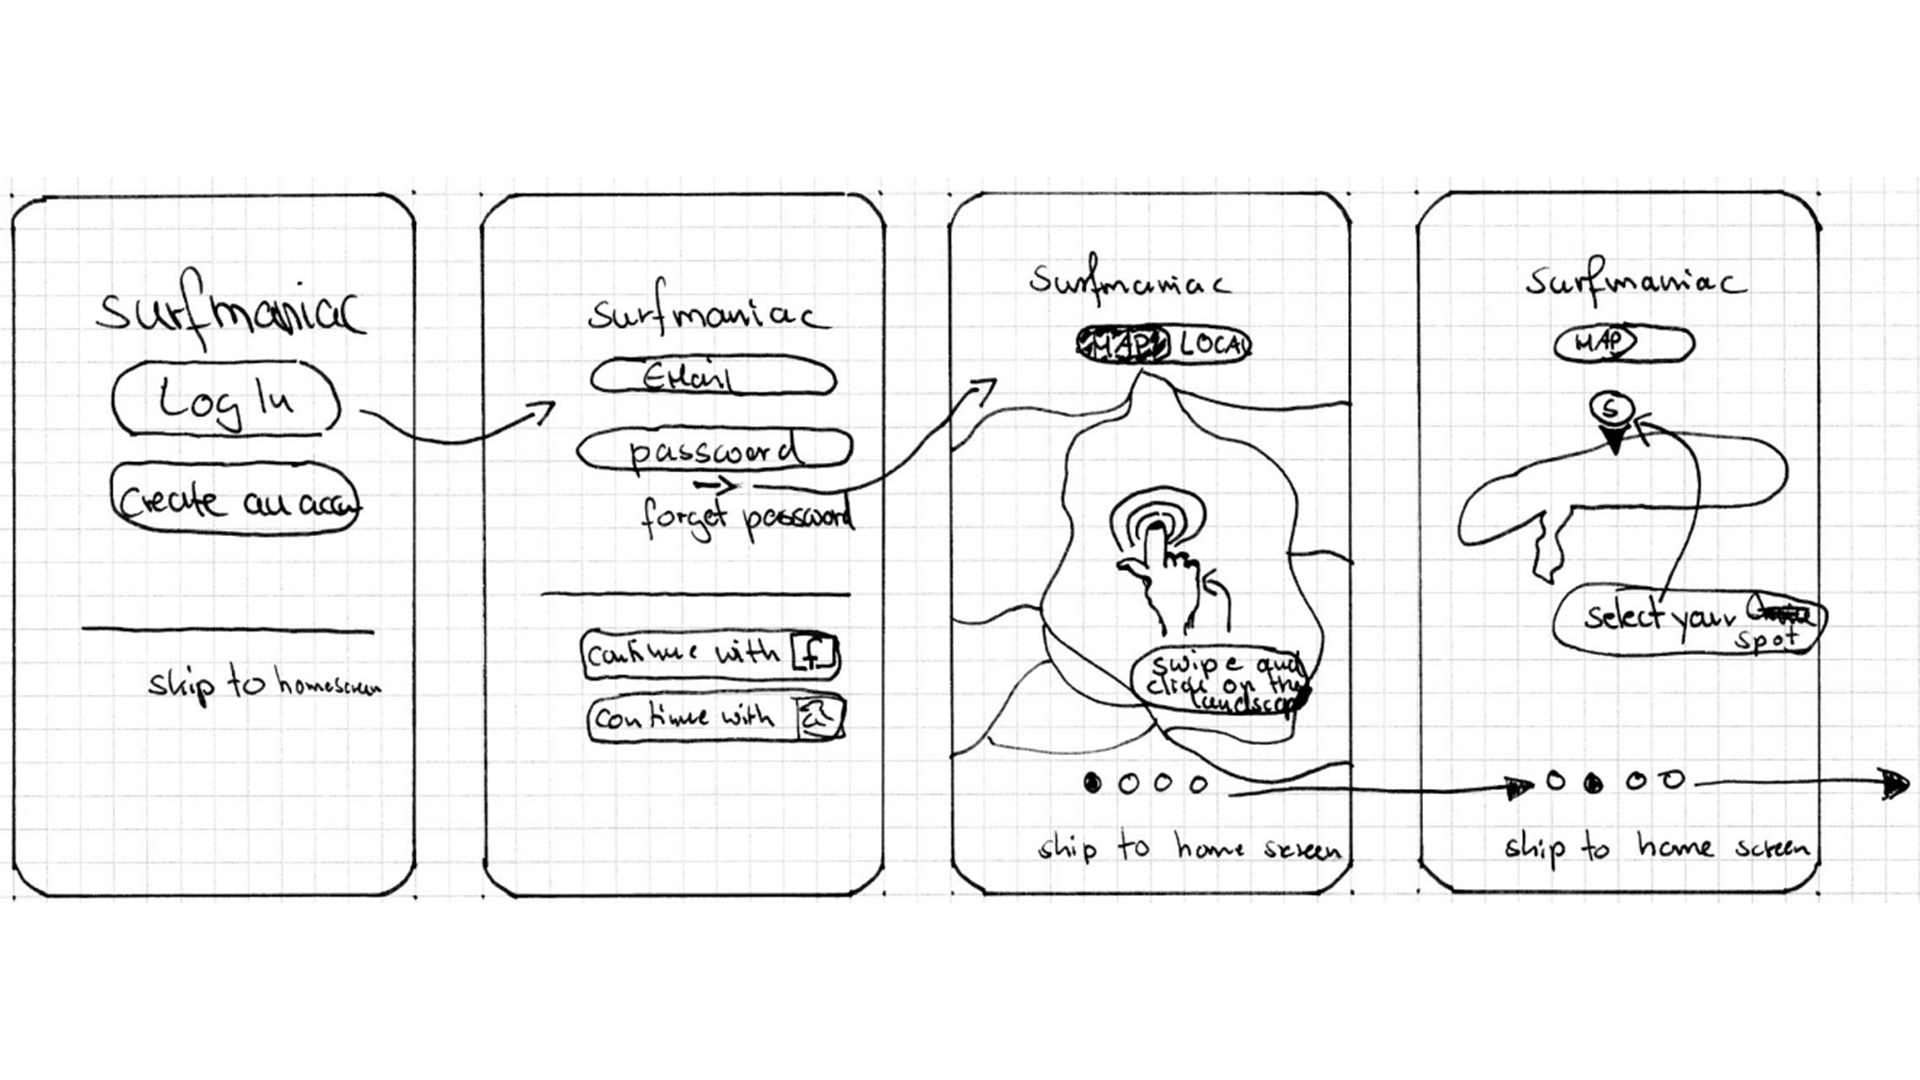 surfmaniac
Log In
Create an accu
skip to homescreen
surfmaniac
EMail
password
forget password
continue with f
continue with
surfmaniac
MAP LOCAL
swipe and
click on the
landscap
skip to home screen
surfmaniac
MAP
S
select your
spot
skip to home screen